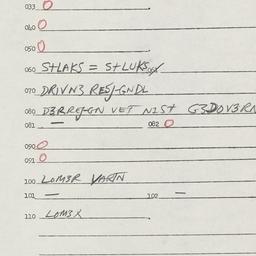 033
040
050
060 StLAKS = StLUKS
070 DRIVN3 RESJ-GNDL
080 D3RREJ-GN VET N1St G3DOV3RN
081 — 082
090
091
100 LOM3R VARTN
101 — 102 —
110 LOM3X